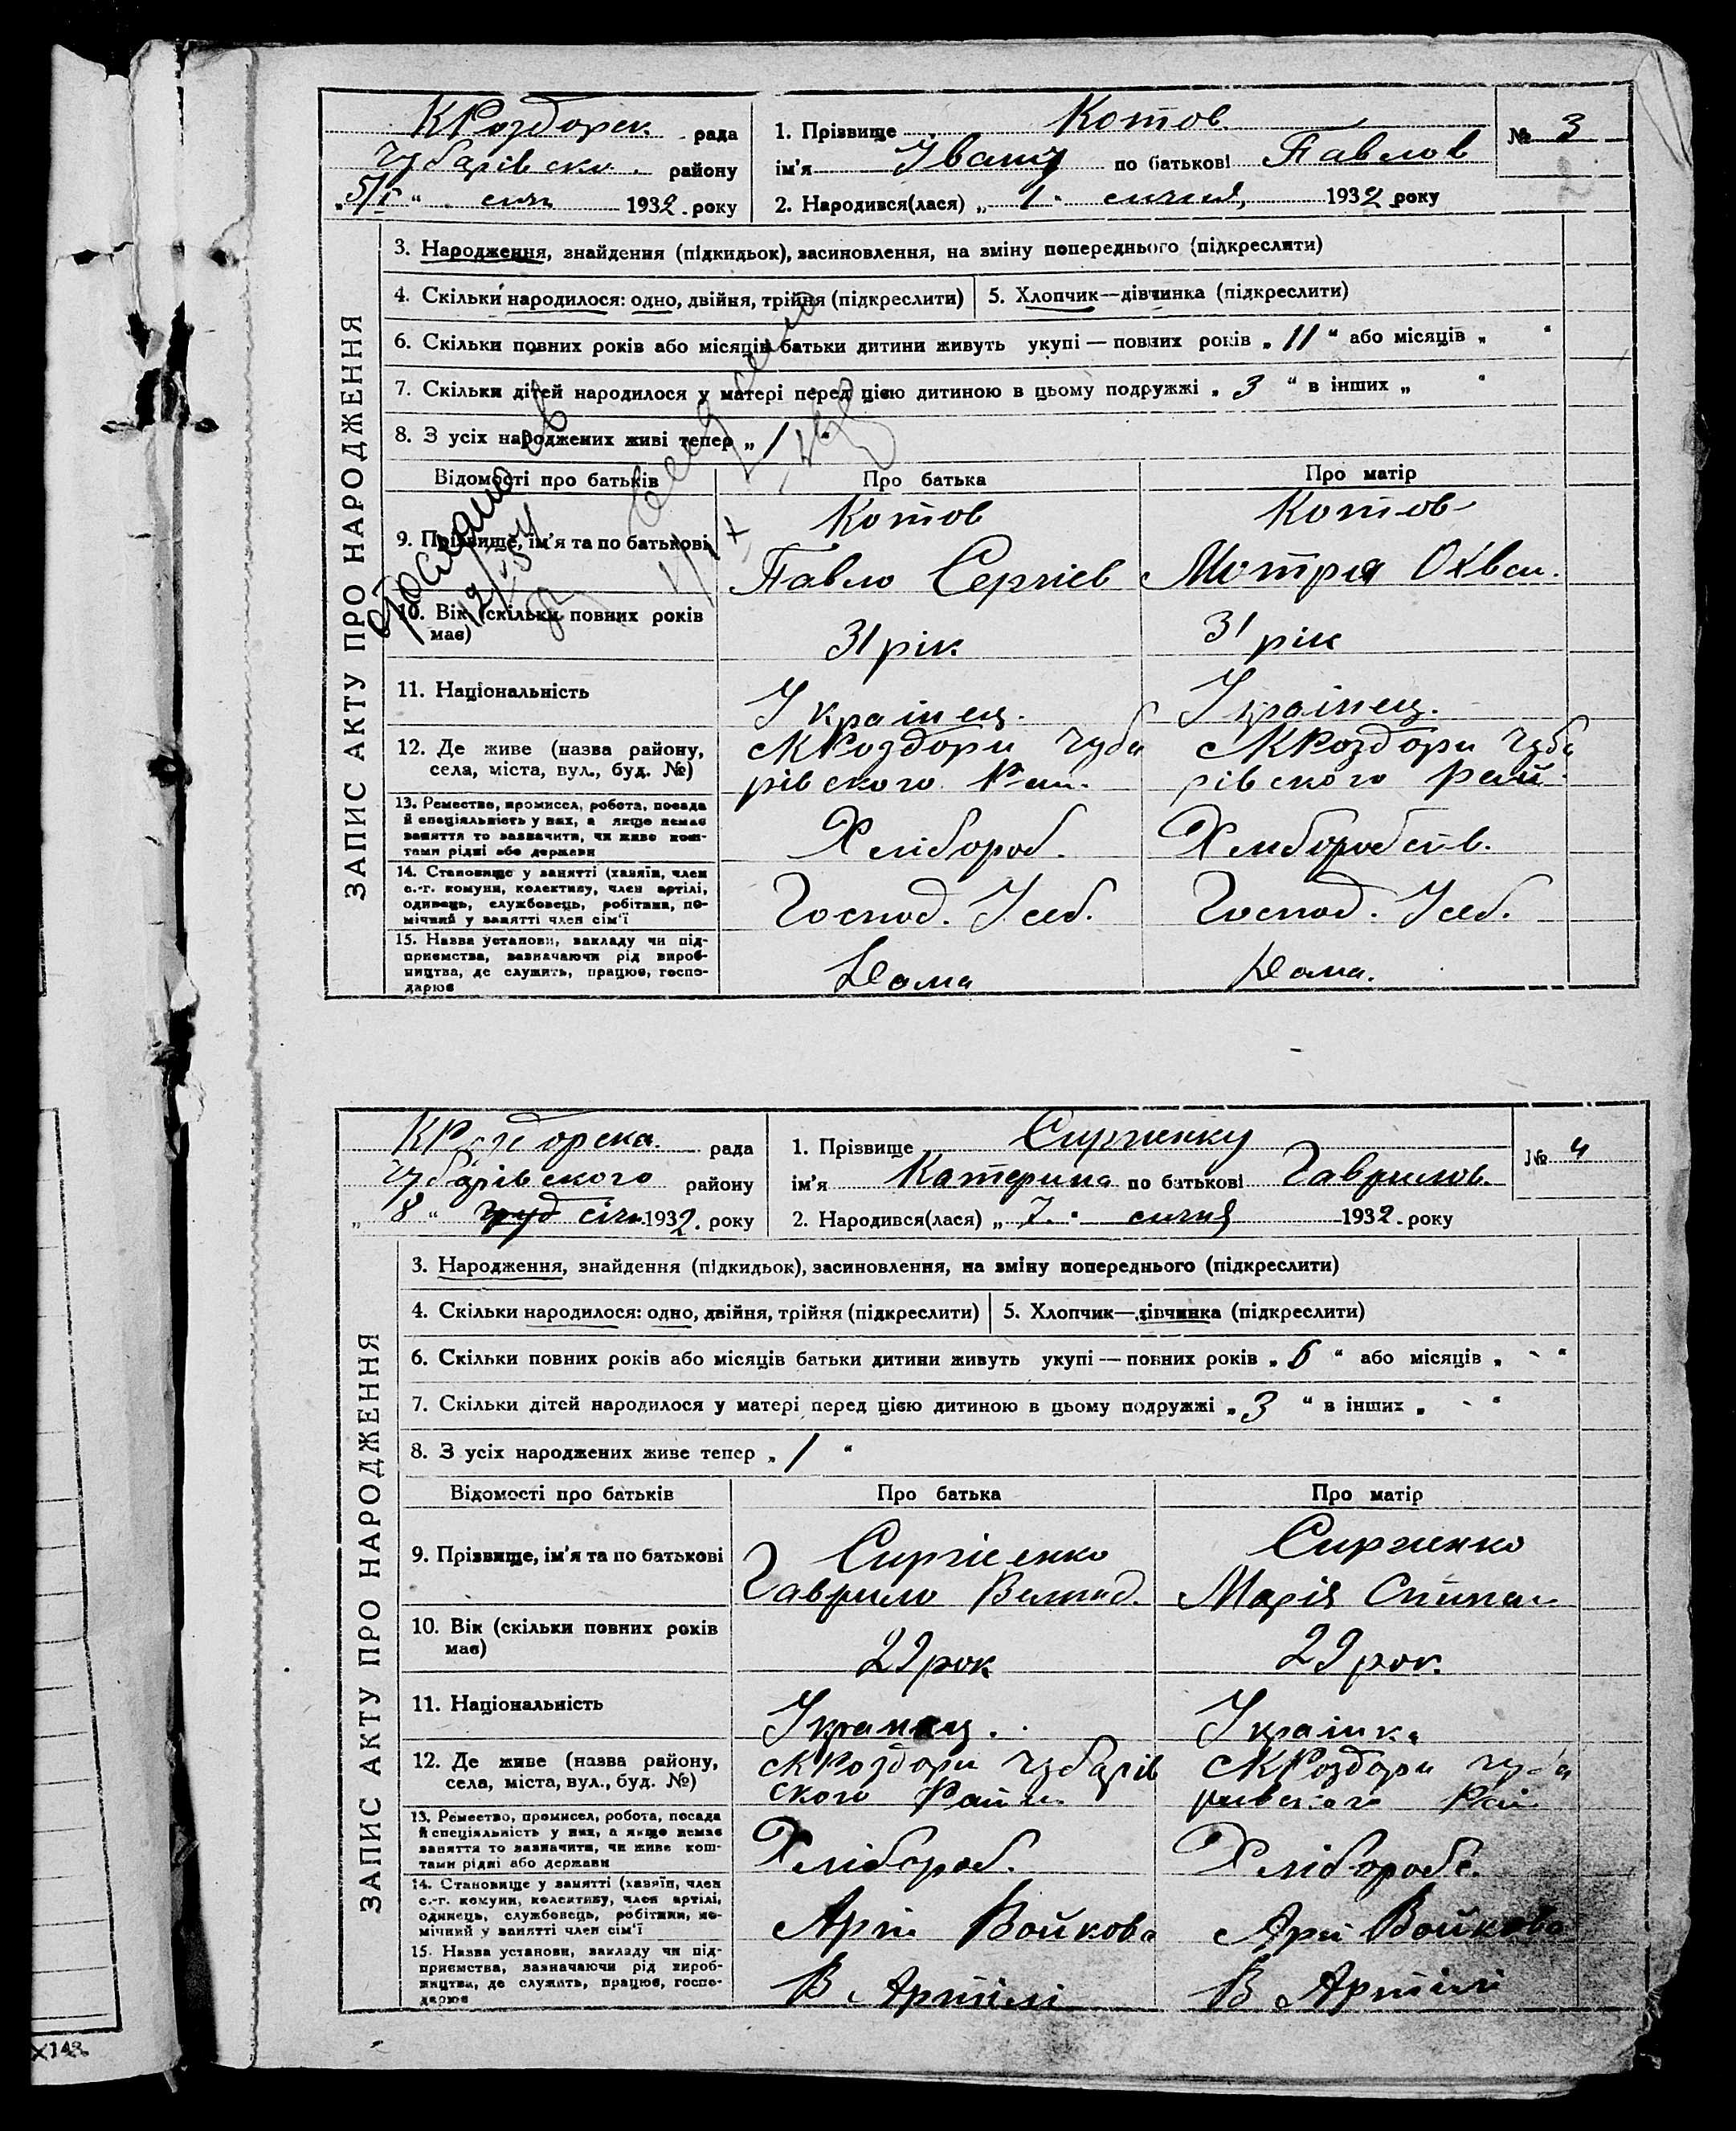 КРоздорск. рада
Чубарівско. району
„5/I“ січн 1932 року
1. Прізвище Котов
ім'я Івану по батькові Павлов
2. Народився(лася) „1“ сичня, 1932 року
№ 3
ЗАПИС АКТУ ПРО НАРОДЖЕННЯ
3. Народження, знайдення (підкидьок), засиновлення, на зміну попереднього (підкреслити)
4. Скільки народилося: одно, двійня, трійня (підкреслити)
5. Хлопчик—дівчинка (підкреслити)
6. Скільки повних років або місяців батьки дитини живуть укупі — повних років „11“ або місяців „ “
7. Скільки дітей народилося у матері перед цією дитиною в цьому подружжі „3“ в інших „ “
8. З усіх народжених живі тепер „1“
Відомості про батьків
Про батька
Про матір
9. Прізвище, ім'я та по батькові
Котов
Павло Сергіев
Котов
Мотря Охвси.
10. Вік (скільки повних років має)
31 рік
31 рік
11. Національність
Українец.
Українец.
12. Де живе (назва району, села, міста, вул., буд. №)
с КРоздори Чуба
рівского Рай.
с КРоздори Чуба
рівского Рай.
13. Ремество, промисел, робота, посада
й спеціяльність у них, а якщо немає
заняття то зазначити, чи живе кош-
тами рідні або держави
Хлібороб.
Хлиборобств.
14. Становище у занятті (хазяїн, член
с.-г. комуни, колективу, член артілі,
одинець, службовець, робітник, по-
мічний у занятті член сім'ї
Господ. У себ.
Господ. У себ.
15. Назва установи, закладу чи під-
приємства, зазначаючи рід вироб-
ництва, де служить, працює, госпо-
дарює
Дома
Дома.
КРоздорска. рада
Чубарівского району
„8“ груд січн 1932. року
1. Прізвище Сиргиенку
ім'я Катерина по батькові Гаврилов.
2. Народився(лася) „7.“ сичня 1932. року
№ 4
ЗАПИС АКТУ ПРО НАРОДЖЕННЯ
3. Народження, знайдення (підкидьок), засиновлення, на зміну попереднього (підкреслити)
4. Скільки народилося: одно, двійня, трійня (підкреслити)
5. Хлопчик—дівчинка (підкреслити)
6. Скільки повних років або місяців батьки дитини живуть укупі — повних років „6“ або місяців „ - “
7. Скільки дітей народилося у матері перед цією дитиною в цьому подружжі „3“ в інших „ - “
8. З усіх народжених живе тепер „1“
Відомості про батьків
Про батька
Про матір
9. Прізвище, ім'я та по батькові
Сиргієнко
Гаврило
Сиргиенко
Марія Степан
10. Вік (скільки повних років має)
29 рок
29 рок.
11. Національність
Украинец.
Українка
12. Де живе (назва району,
села, міста, вул., буд. №)
с КРоздори Чубарів
ского Район
с КРоздори Чуба
ривского Рай
13. Ремество, промисел, робота, посада
й спеціяльність у них, а якщо немає
заняття то зазначити, чи живе кош-
тами рідні або держави
Хлібороб.
Хлібороб.
14. Становище у занятті (хазяїн, член
с.-г. комуни, колективу, член артілі,
одинець, службовець, робітник, по-
мічний у занятті член сім'ї
Арті Войкова
Арті Войкова
15. Назва установи, закладу чи під-
приємства, зазначаючи рід вироб-
ництва, де служить, працює, госпо-
дарює
В Артілі
В Артілі